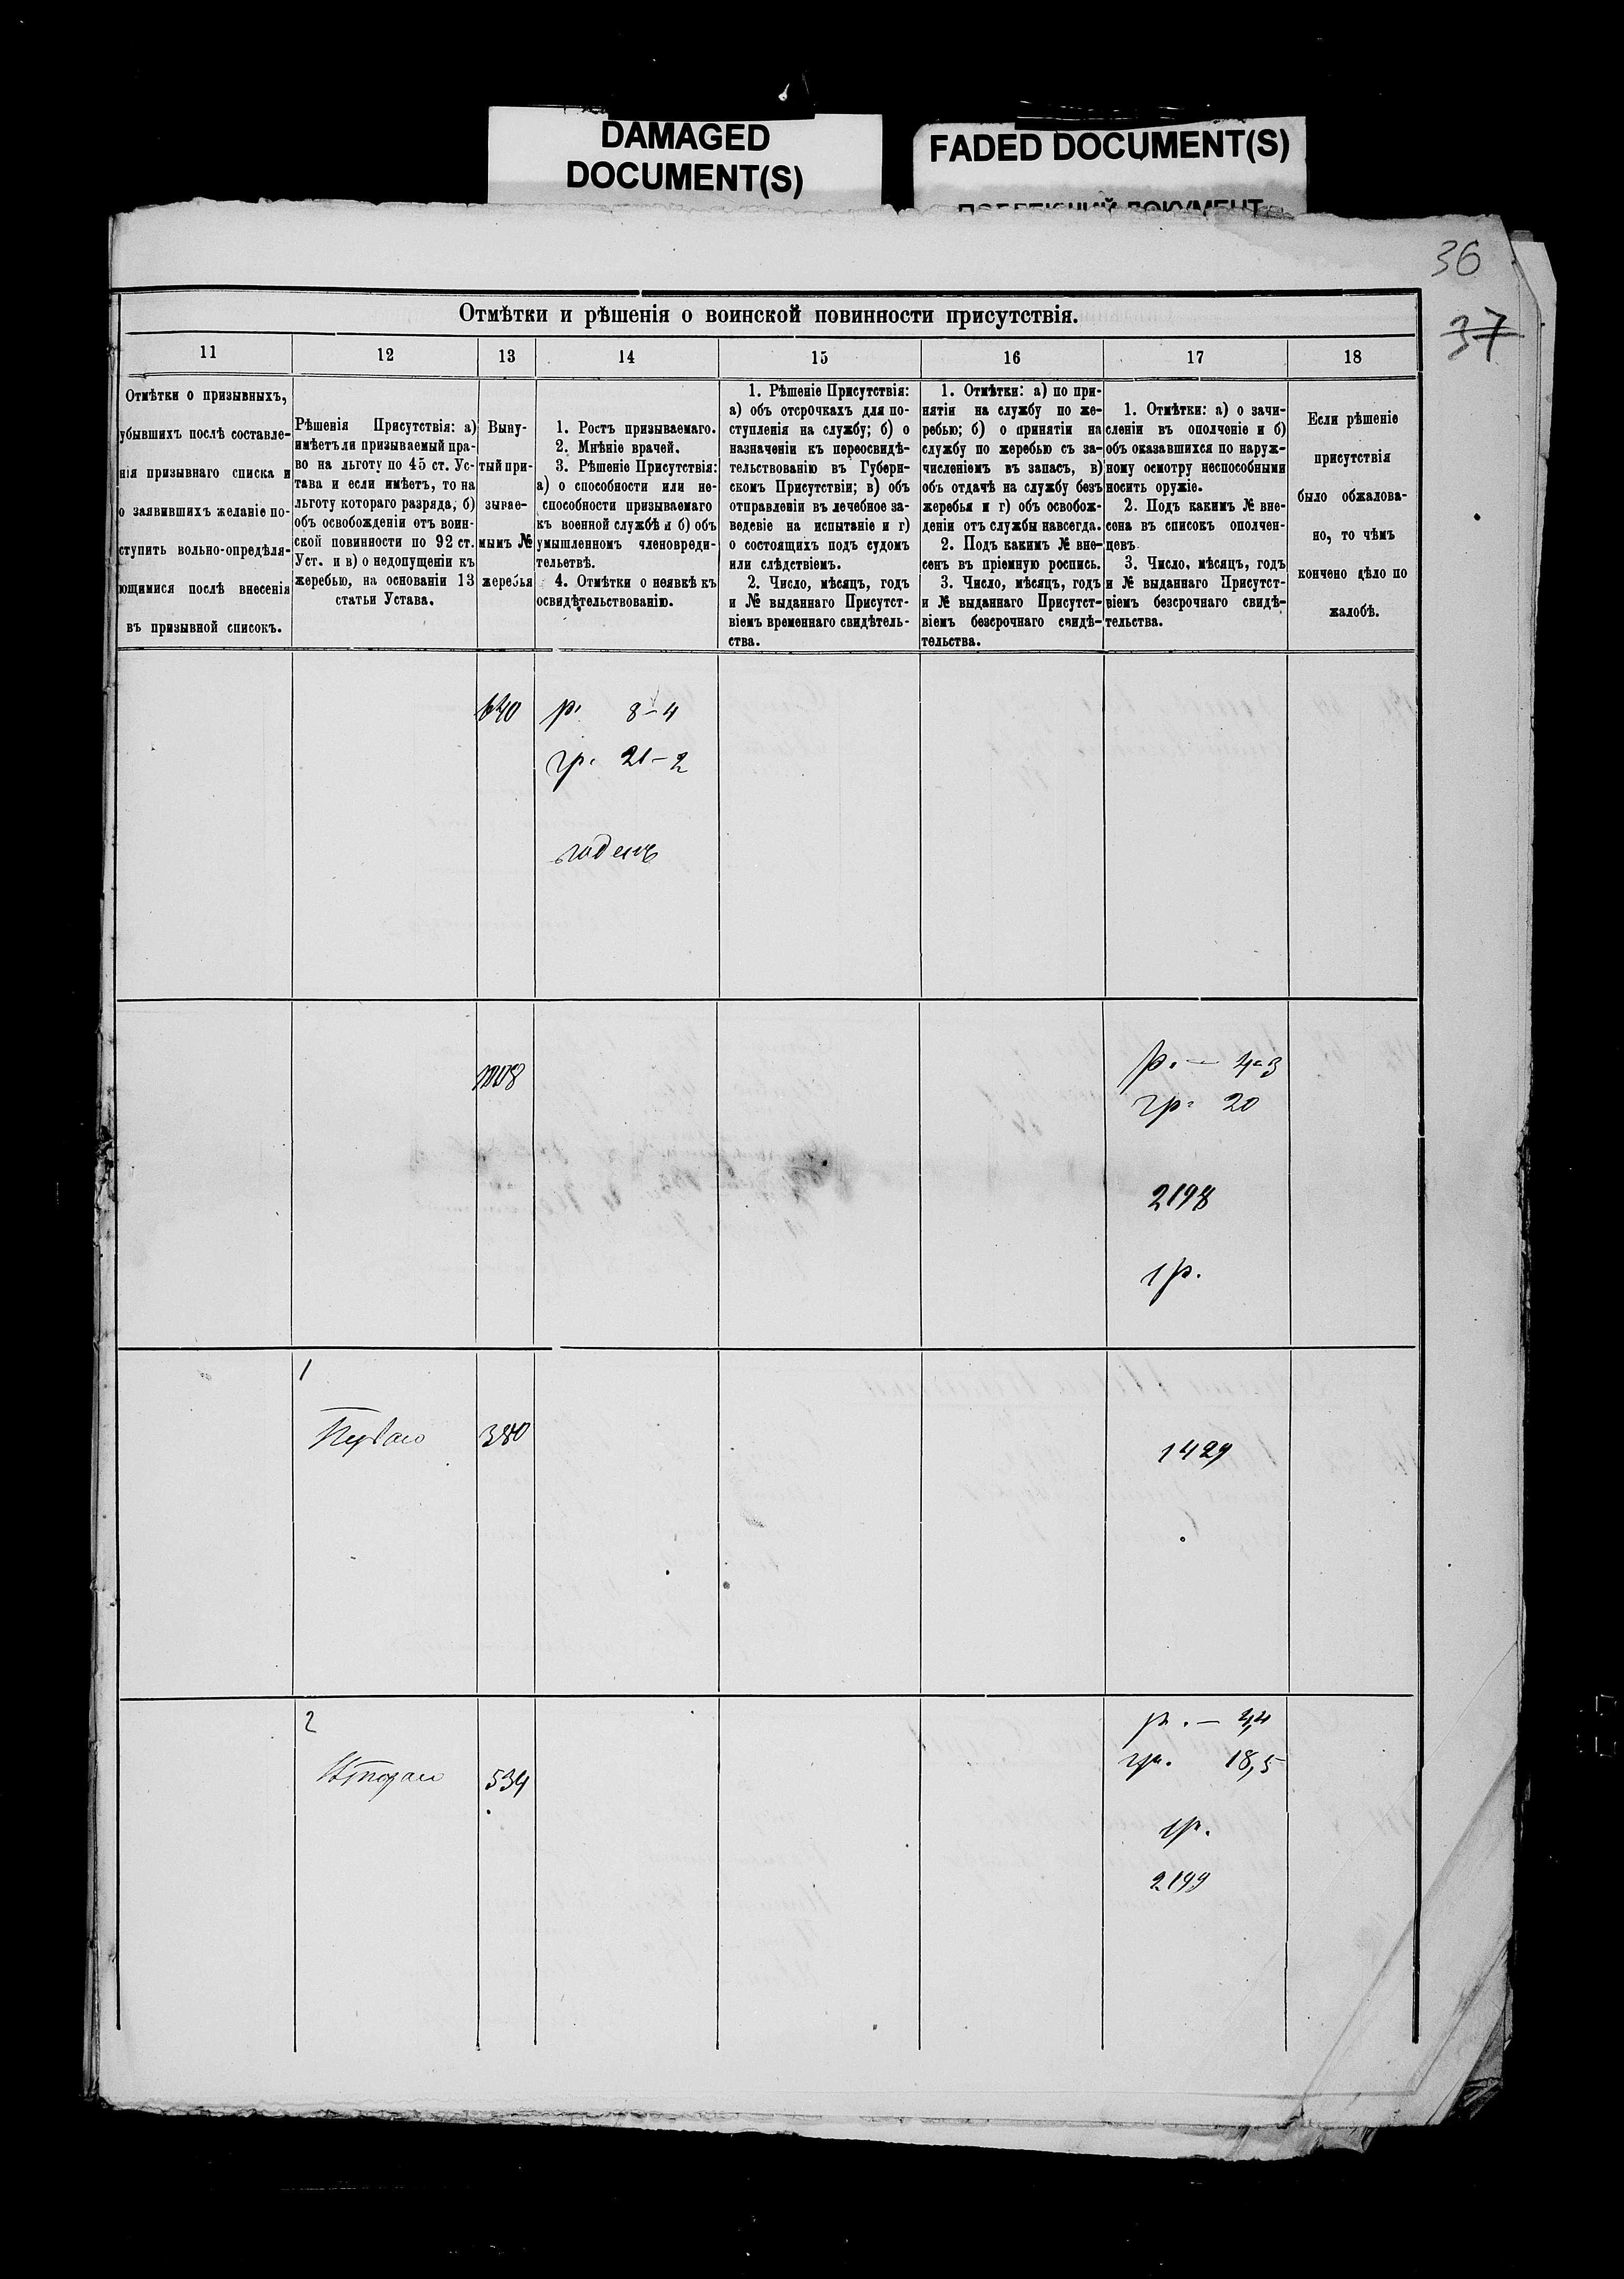 DAMAGED
DOCUMENT(S)
FADED DOCUMENT(S)
36
37
Отмѣтки и рѣшенія о воинской повинности присутствія.
11
12
13
14
15
16
17
18
Отмѣтки о призывныхъ,
убывшихъ послѣ составле-
нія призывнаго списка и
о заявившихъ желаніе по-
ступить вольно-опредѣля-
ющимися послѣ внесенія
въ призывной списокъ.
Рѣшенія Присутствія: а)
имѣетъ ли призываемый пра-
во на льготу по 45 ст. Ус-
тава и если имѣетъ, то на
льготу котораго разряда, б)
объ освобожденіи отъ воин-
ской повинности по 92 ст.
Уст. и в) о недопущеніи къ
жеребью, на основаніи 13
статьи Устава.
Выну-
тый при-
зывае-
мымъ №
жеребья
1. Ростъ призываемаго.
2. Мнѣніе врачей.
3. Рѣшеніе Присутствія:
а) о способности или не-
способности призываемаго
къ военной службѣ и б) объ
умышленномъ членовреди-
тельствѣ.
4. Отмѣтки о неявкѣ къ
освидѣтельствованію.
1. Рѣшеніе Присутствія:
а) объ отсрочкахъ для по-
ступленія на службу; б) о
назначеніи къ переосвидѣ-
тельствованію въ Губерн-
скомъ Присутствіи; в) объ
отправленіи въ лечебное за-
веденіе на испытаніе и г)
о состоящихъ подъ судомъ
или слѣдствіемъ.
2. Число, мѣсяцъ, годъ
и № выданнаго Присутст-
віемъ временнаго свидѣтель-
ства.
1. Отмѣтки: а) по при-
нятіи на службу по же-
ребью; б) о принятіи на
службу по жеребью съ за-
численіемъ въ запасъ, в)
объ отдачѣ на службу безъ
жеребья и г) объ освобож-
деніи отъ службы навсегда.
2. Подъ какимъ № вне-
сенъ въ пріемную роспись.
3. Число, мѣсяцъ, годъ
и № выданнаго Присутст-
віемъ безсрочнаго свидѣ-
тельства.
1. Отмѣтки: а) о зачи-
сленіи въ ополченіе и б)
объ оказавшихся по наруж-
ному осмотру неспособными
носить оружіе.
2. Подъ какимъ № вне-
сена въ списокъ ополчен-
цевъ.
3. Число, мѣсяцъ, годъ
и № выданнаго Присутст-
віемъ безсрочнаго свидѣ-
тельства.
Если рѣшеніе
присутствія
было обжалова-
но, то чѣмъ
кончено дѣло по
жалобѣ.
640
р. 8-4
гр. 21-2
годенъ
1008
р. — 4-3
гр. 20
2198
1 р.
1
Перваго
380
1429
2
Втораго
534
р. — 4,4
гр. 18,5
1р.
2199